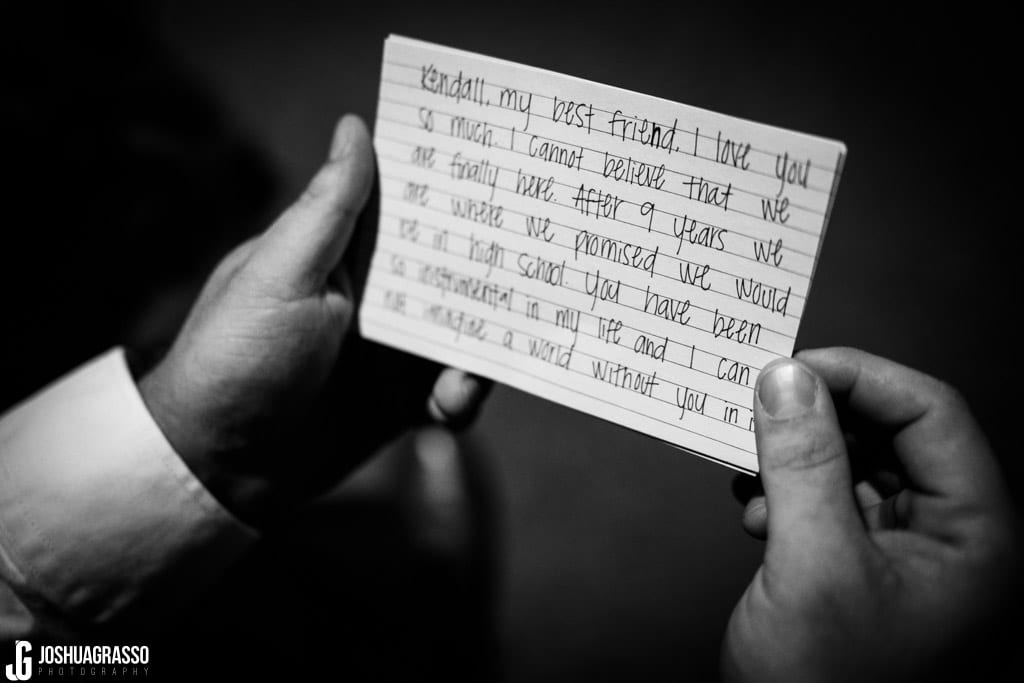 Kendall, my best friend, I love you
so much. I cannot believe that we
are finally here. After 9 years we
are where we promised we would
be in high school. You have been
so instrumental in my life and I can
not imagine a world without you in i
JG JOSHUAGRASSO
PHOTOGRAPHY